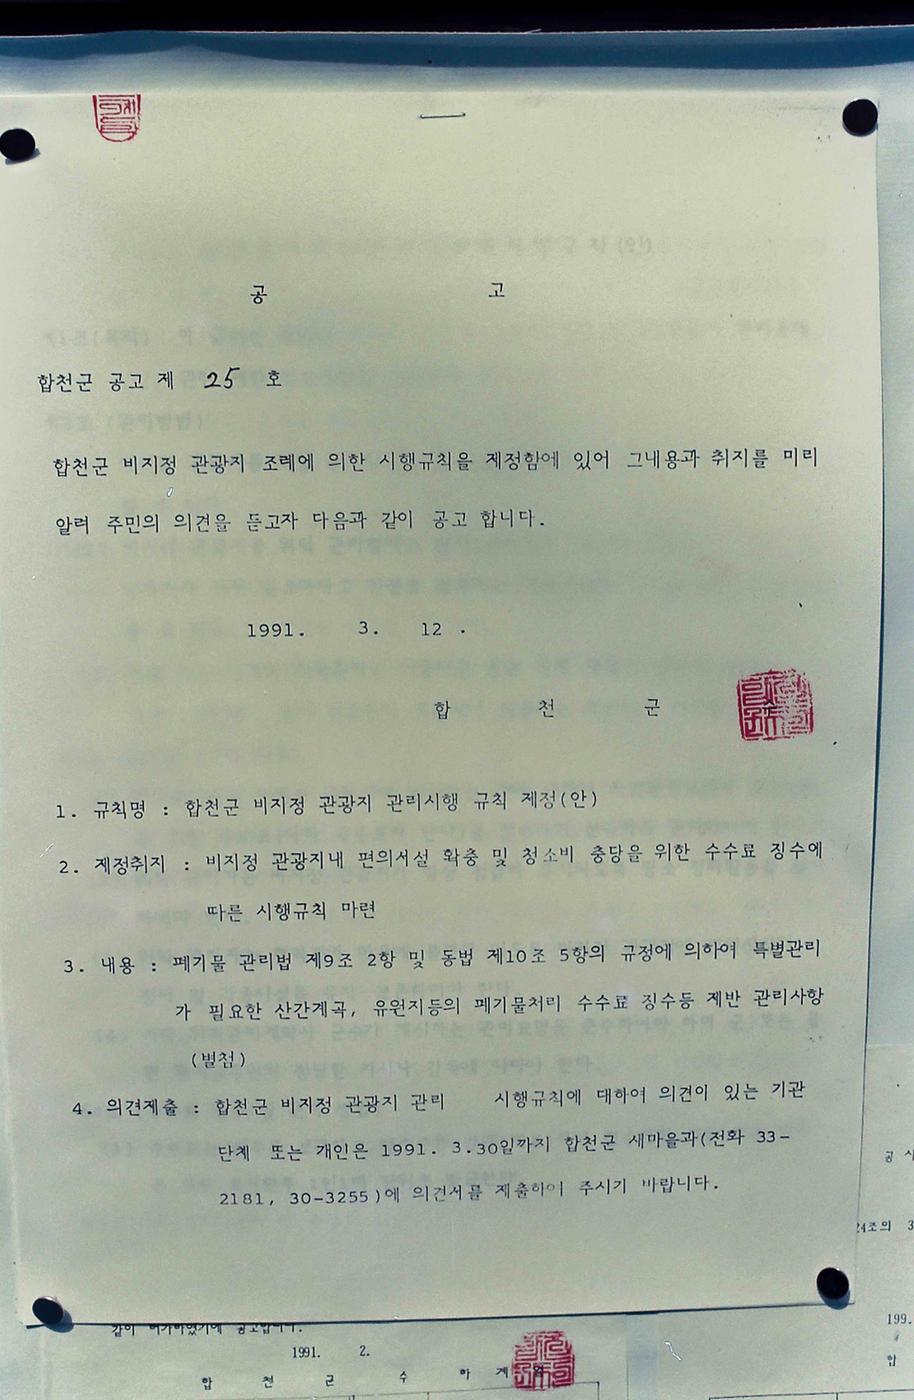 공 고
합천군 공고 제 25 호
합천군 비지정 관광지 조례에 의한 시행규칙을 제정함에 있어 그내용과 취지를 미리
알려 주민의 의견을 듣고자 다음과 같이 공고 합니다.
1991. 3. 12 .
합 천 군 수
1. 규칙명 : 합천군 비지정 관광지 관리시행 규칙 제정(안)
2. 제정취지 : 비지정 관광지내 편의서설 확충 및 청소비 충당을 위한 수수료 징수에
따른 시행규칙 마련
3. 내용 : 폐기물 관리법 제9조 2항 및 동법 제10조 5항의 규정에 의하여 특별관리
가 필요한 산간계곡, 유원지등의 폐기물처리 수수료 징수등 제반 관리사항
(별첨)
4. 의견제출 : 합천군 비지정 관광지 관리 시행규칙에 대하여 의견이 있는 기관
단체 또는 개인은 1991. 3.30일까지 합천군 새마을과(전화 33-
2181, 30-3255)에 의견서를 제출하여 주시기 바랍니다.
공 시
24조의 3
같이 허가하였기에 공고합니다.
199.
1991. 2.
합
합 천 군 수 하 계